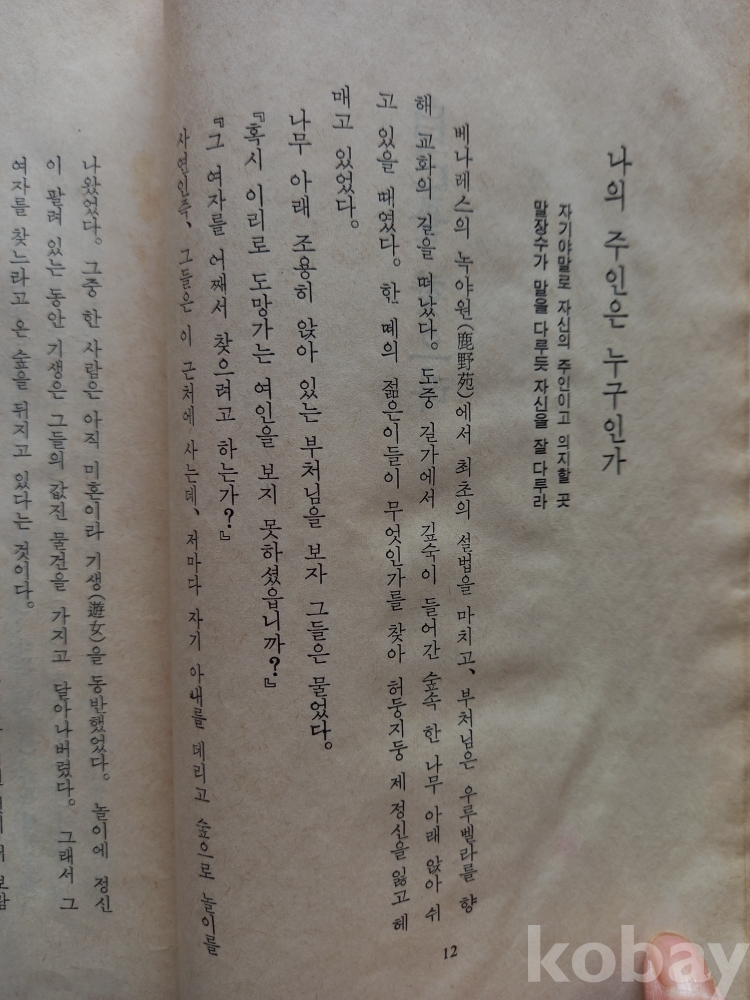 나의 주인은 누구인가
자기야말로 자신의 주인이고 의지할 곳
말장수가 말을 다루듯 자신을 잘 다루라
베나레스의 녹야원(鹿野苑)에서 최초의 설법을 마치고, 부처님은 우루벨라를 향
해 교화의 길을 떠났다. 도중 길가에서 깊숙이 들어간 숲속 한 나무 아래 앉아 쉬
고 있을 때였다. 한 떼의 젊은이들이 무엇인가를 찾아 허둥지둥 제 정신을 잃고 헤
매고 있었다.
나무 아래 조용히 앉아 있는 부처님을 보자 그들은 물었다.
『혹시 이리로 도망가는 여인을 보지 못하셨읍니까?』
『그 여자를 어째서 찾으려고 하는가?』
사연인즉, 그들은 이 근처에 사는데, 저마다 자기 아내를 데리고 숲으로 놀이를
나왔었다. 그중 한 사람은 아직 미혼이라 기생(遊女)을 동반했었다. 놀이에 정신
이 팔려 있는 동안 기생은 그들의 값진 물건을 가지고 달아나버렸다. 그래서 그
여자를 찾느라고 온 숲을 뒤지고 있다는 것이다.
12
kobay